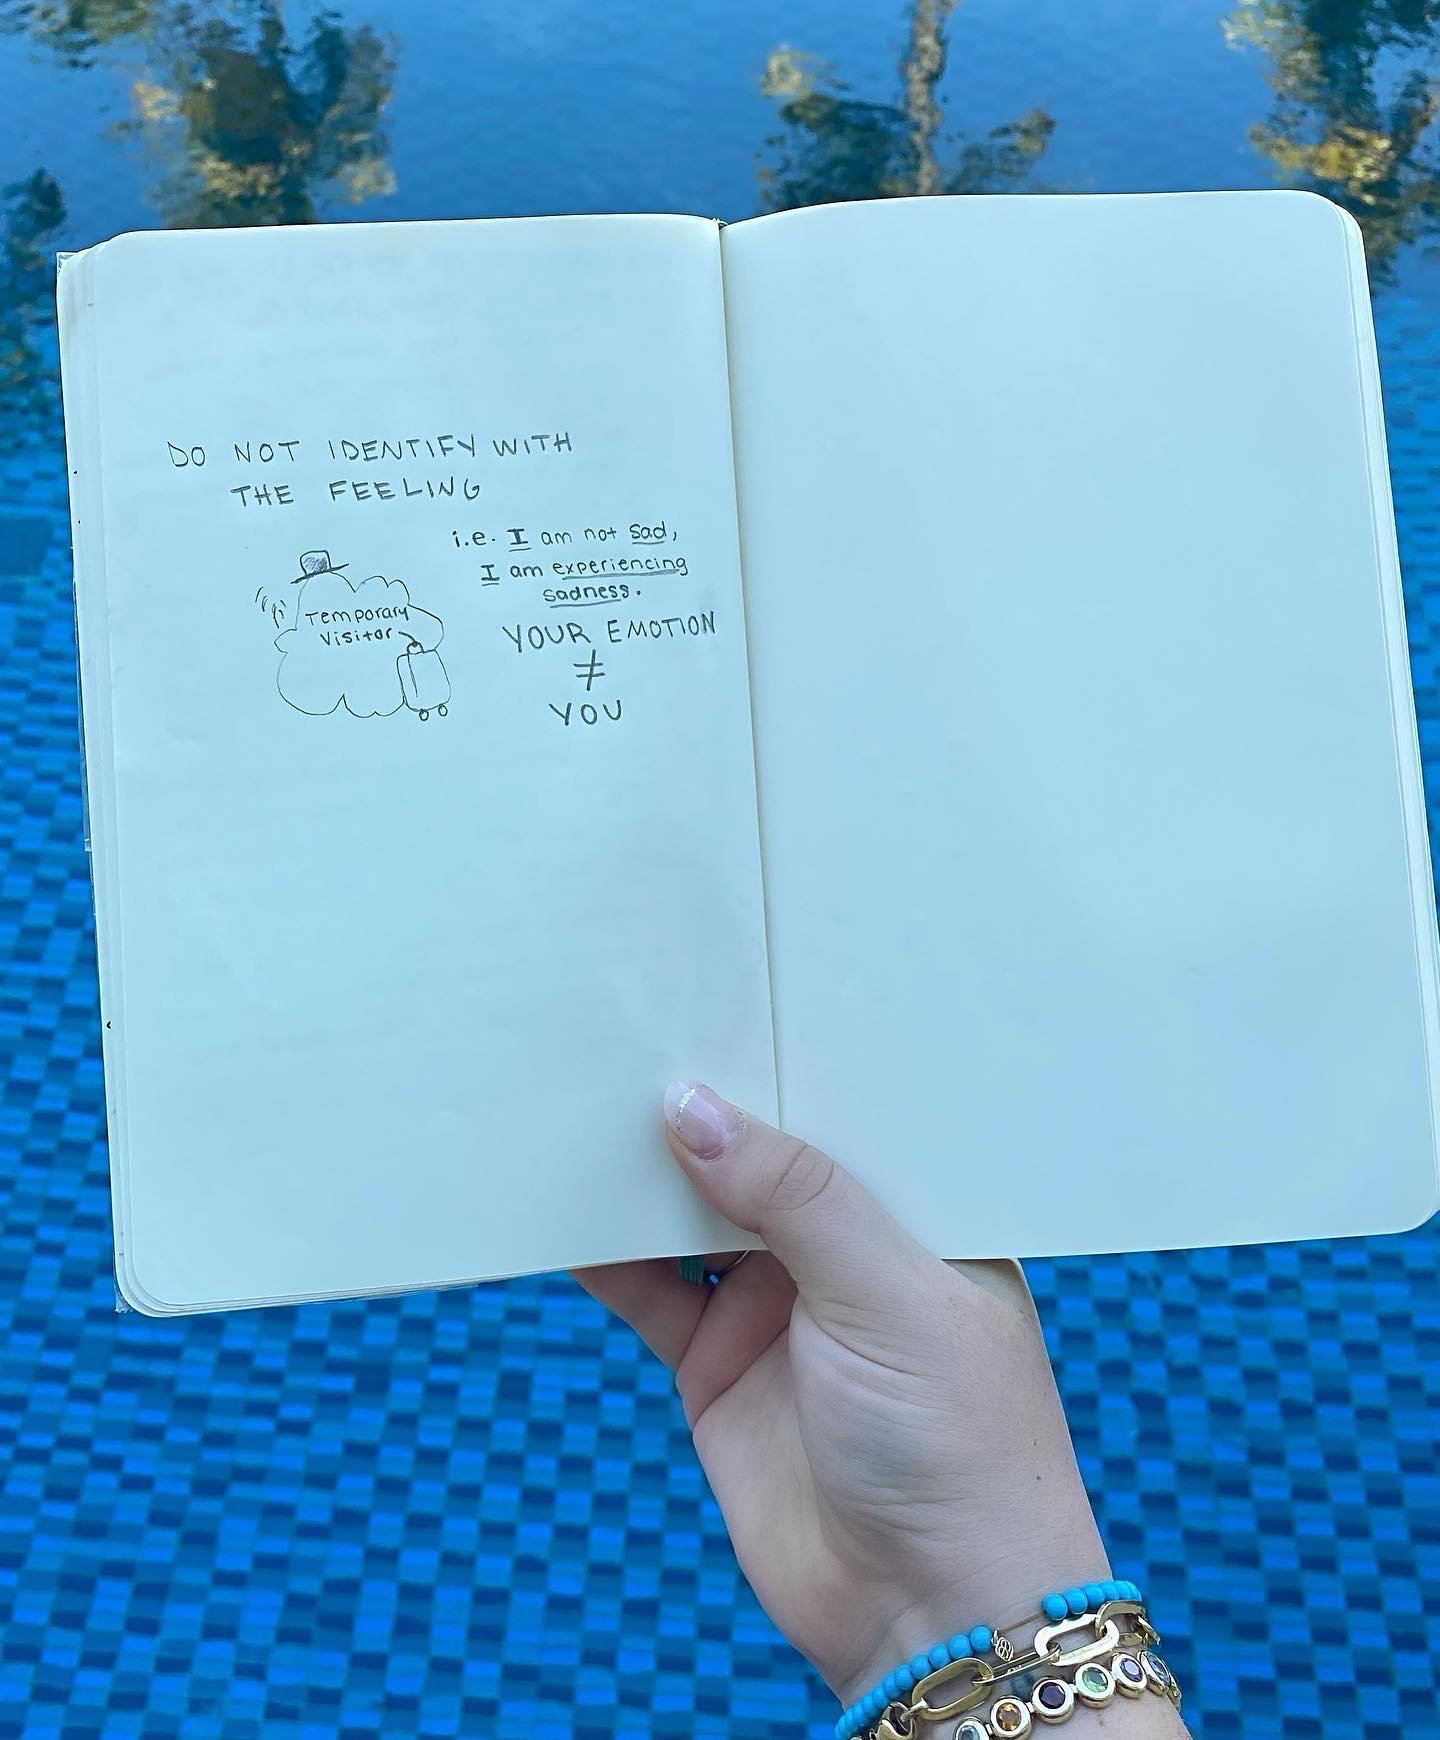 DO NOT IDENTIFY WITH
THE FEELING
i.e. I am not sad,
I am experiencing
sadness.
Temporary
Visitor
YOUR EMOTION
≠
YOU